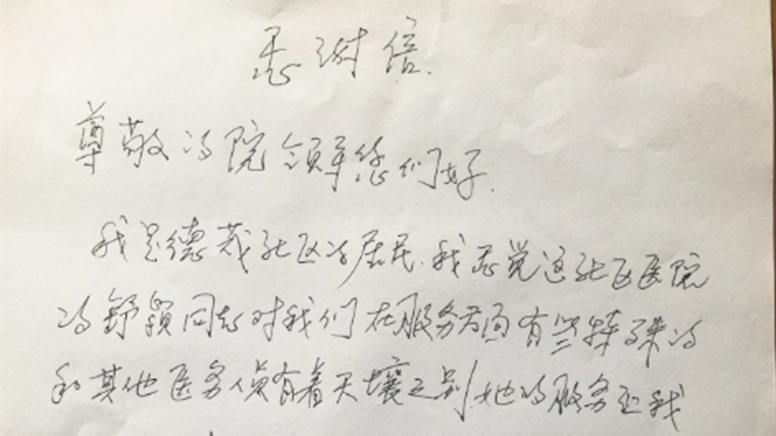 感谢信.
尊敬的院领导您们好.
我是德茂社区的居民.我感觉这社区医院
的舒颖同志对我们在服务方面有些特殊的
和其他医务人员有着天壤之别.她的服务至我